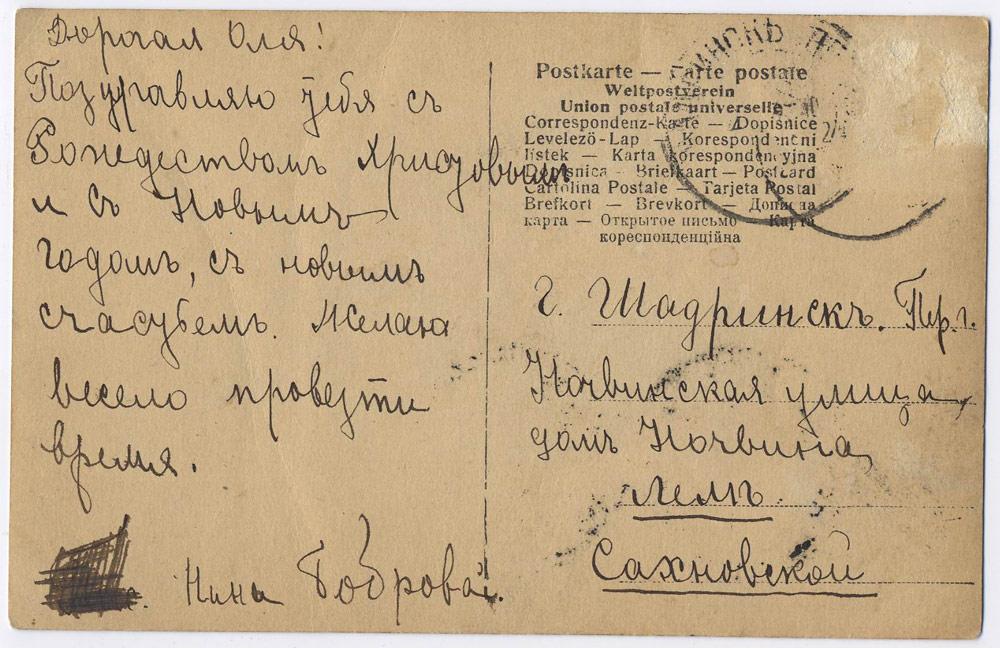 Дорогая Оля!
Поздравляю тебя съ
Рождествомъ Христовымъ
и съ Новымъ
годомъ, съ новымъ
счастьемъ. Желаю
весело провезти
время.
Нина Боброва.
Postkarte — Carte postale
Weltpostverein
Union postale universelle
Correspondenz-Karte — Dopisnice
Levelező-Lap — Korespondenční
lístek — Karta korespondencyjna
Dopisnica — Briefkaart — Postcard
Cartolina Postale — Tarjeta Postal
Brefkort — Brevkort — Дописна
карта — Открытое письмо — Карта
кореспонденційна
г. Шадринскъ. Пер. г.
Ночвинская улица,
домъ Ночвина,
Сахновской